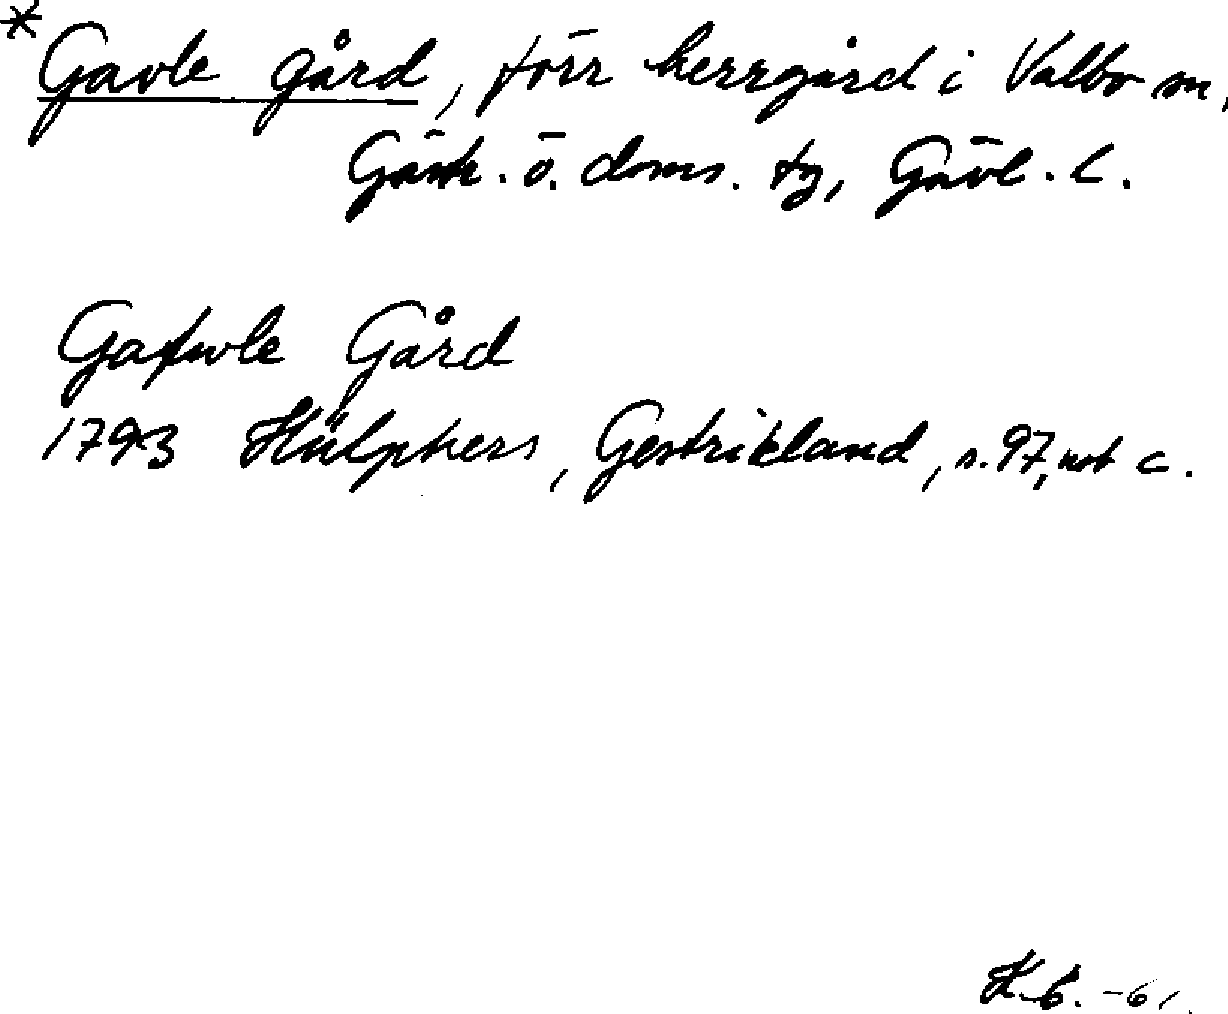 * Gavle gård, förr herrgård i Valbo sn,
Gästr. ö. doms. tg, Gävl. l.
Gafwle Gård
1793 Hülphers, Gestrikland, s. 97, not c.
K.G. -61.